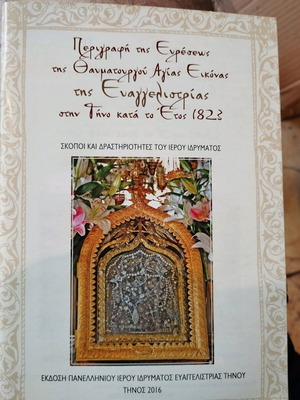 Περιγραφή της Ευρέσεως
της Θαυματουργού Αγίας Εικόνας
της Ευαγγελιστρίας
στην Τήνο κατά το Έτος 1823
ΣΚΟΠΟΙ ΚΑΙ ΔΡΑΣΤΗΡΙΟΤΗΤΕΣ ΤΟΥ ΙΕΡΟΥ ΙΔΡΥΜΑΤΟΣ
ΕΚΔΟΣΗ ΠΑΝΕΛΛΗΝΙΟΥ ΙΕΡΟΥ ΙΔΡΥΜΑΤΟΣ ΕΥΑΓΓΕΛΙΣΤΡΙΑΣ ΤΗΝΟΥ
ΤΗΝΟΣ 2016